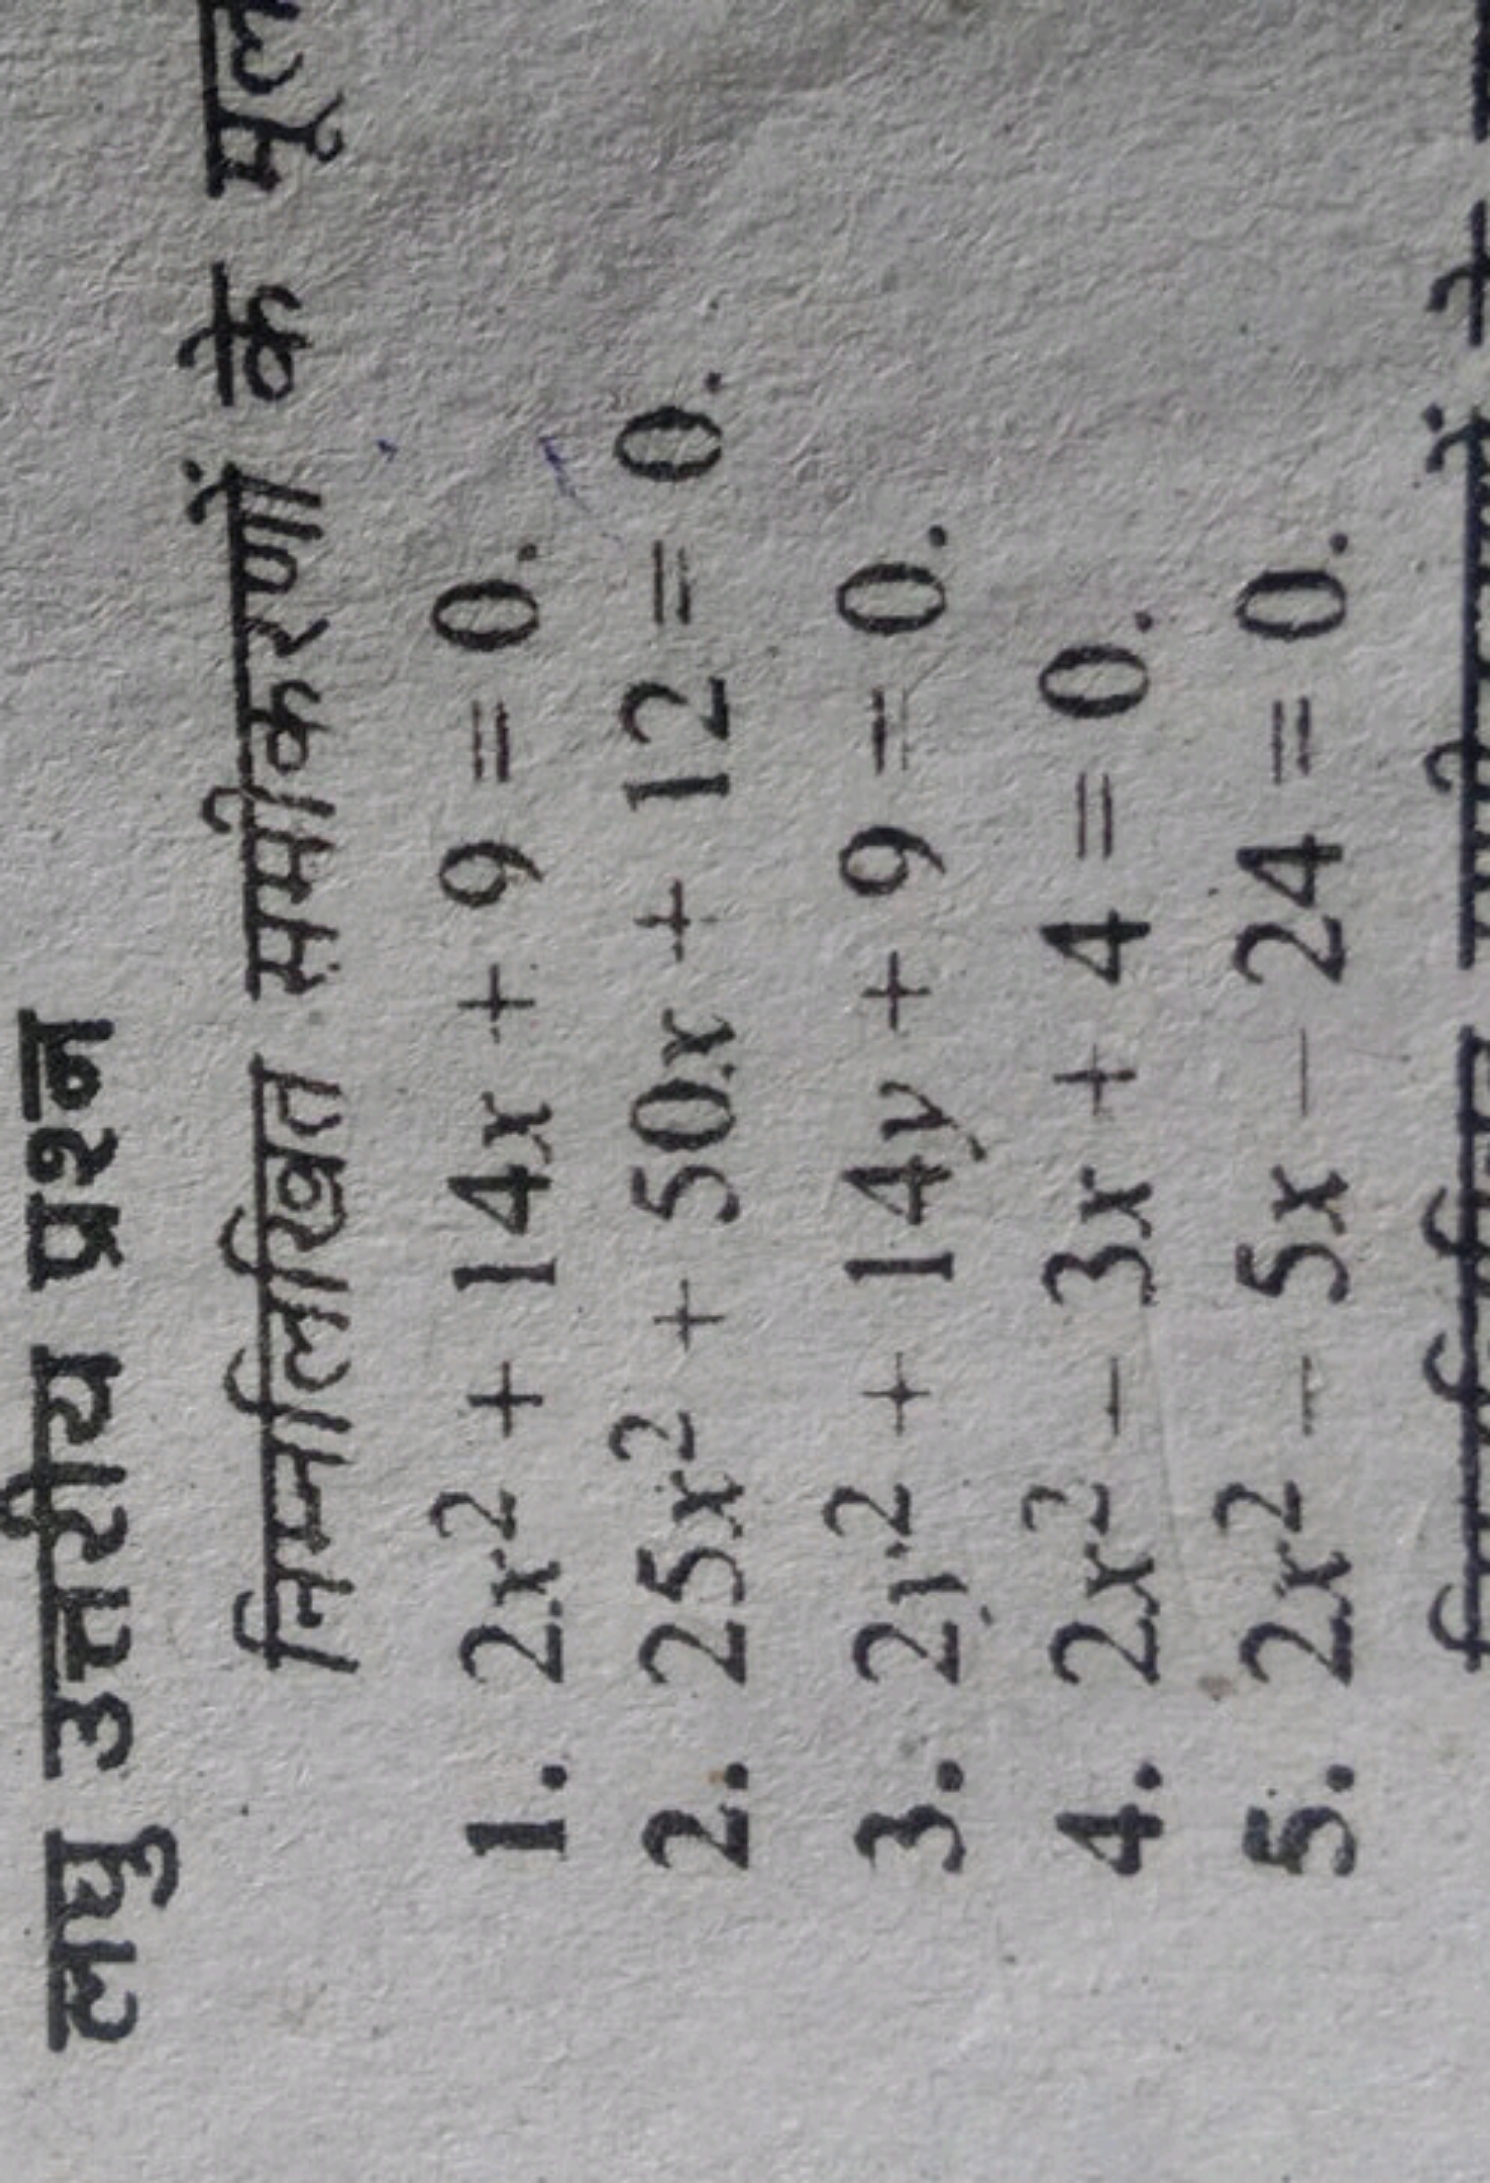 लघु उत्तरीय प्रश्न
निम्नलिखित समीकरणों के मूल
1. 2x² + 14x + 9 = 0.
2. 25x² + 50x + 12 = 0.
3. 2y² + 14y + 9 = 0.
4. 2x² − 3x + 4 = 0.
5. 2x² − 5x − 24 = 0.